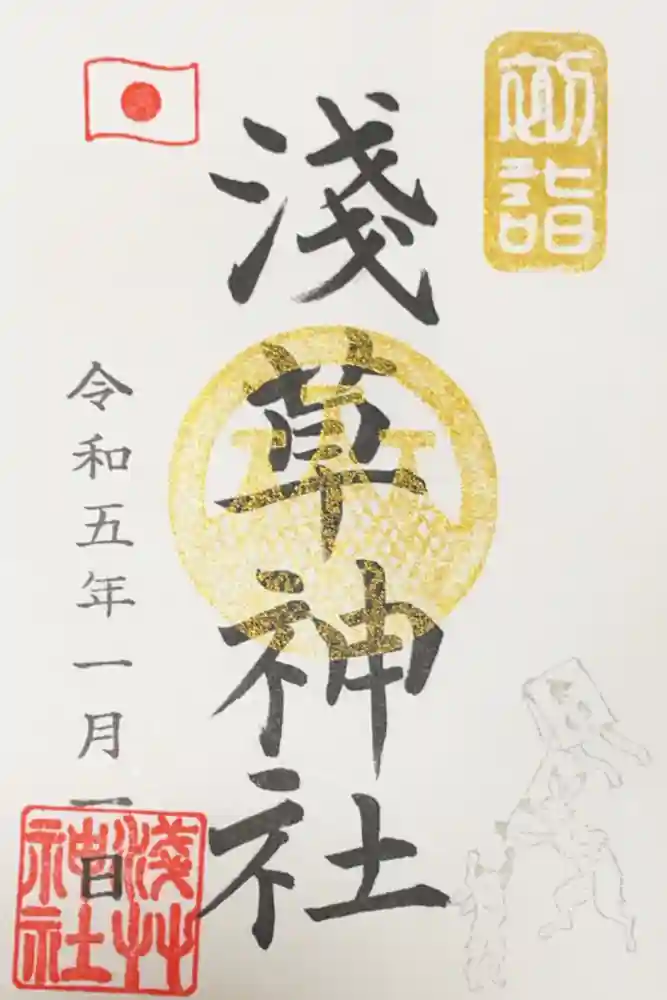 初詣
淺草神社
令和五年一月一日
淺草
神社